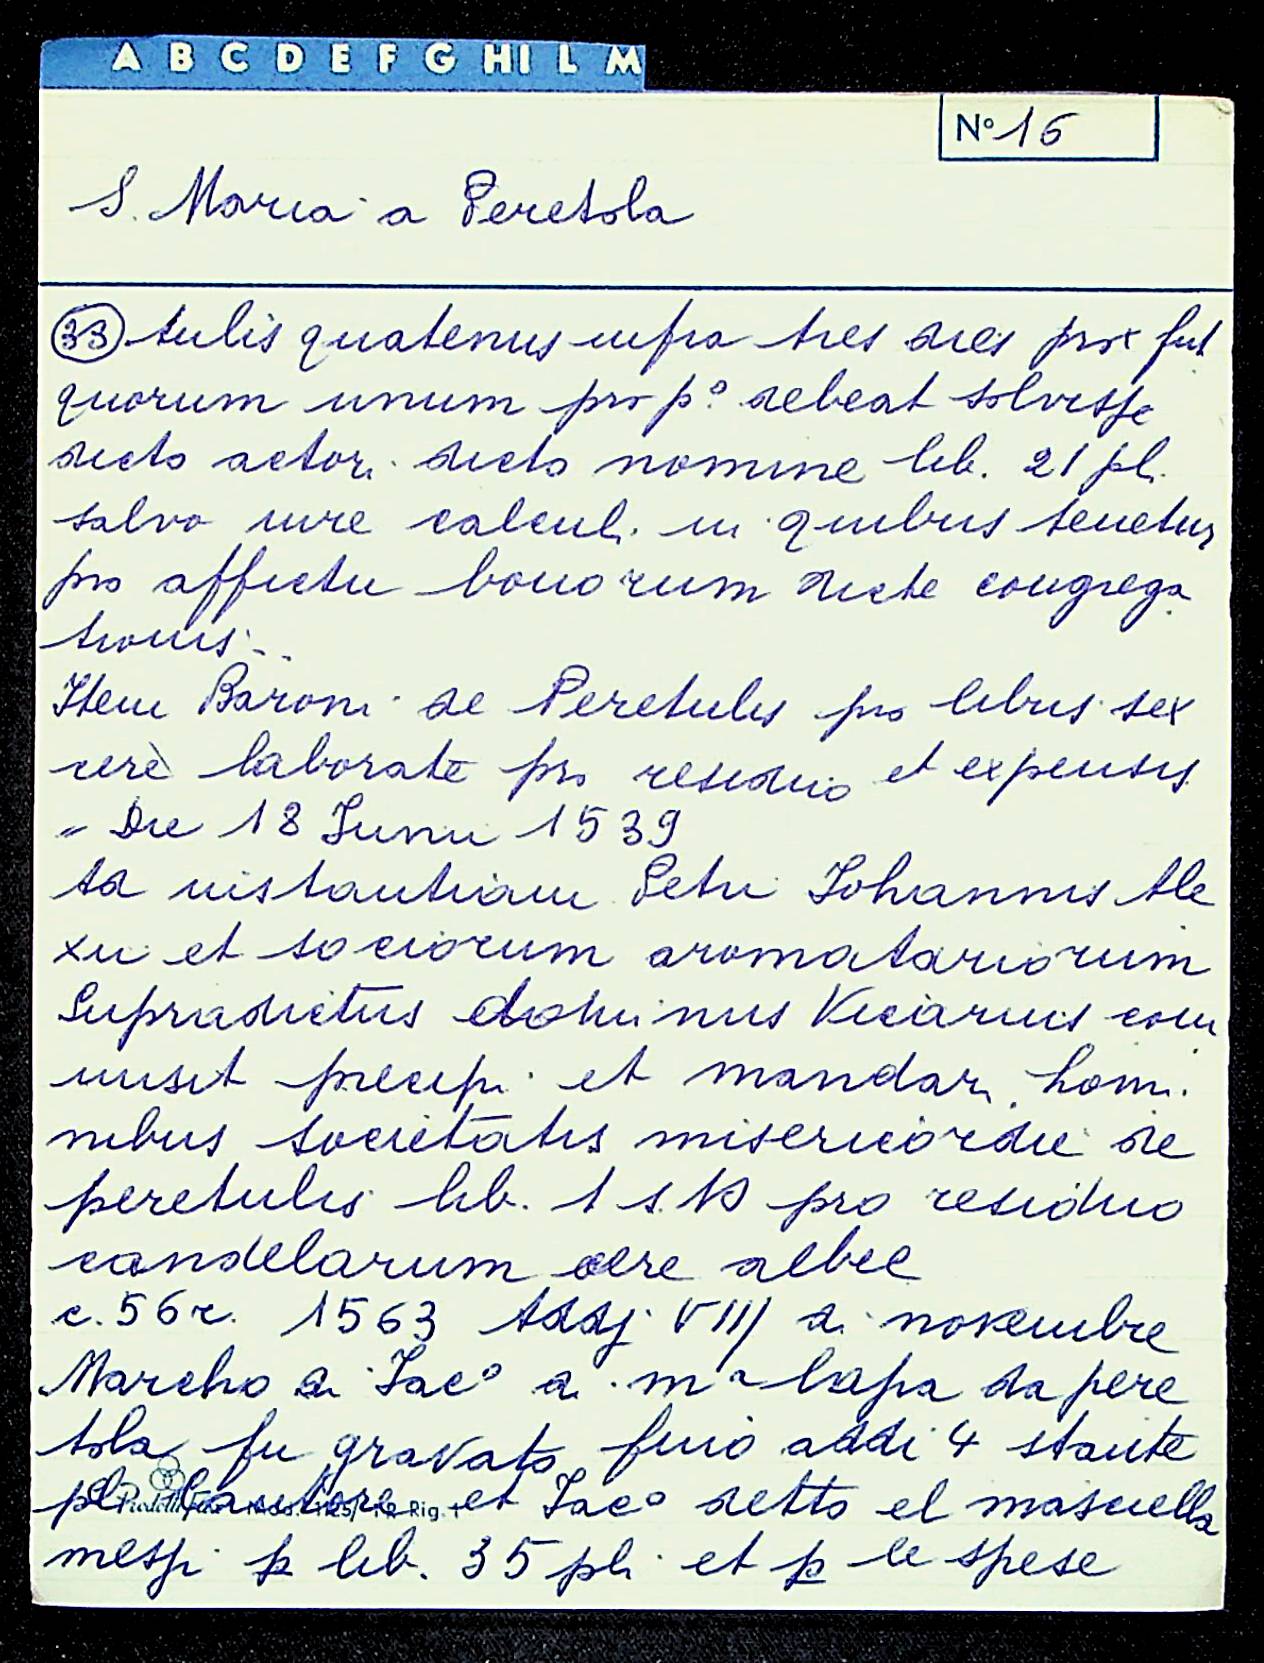 A B C D E F G HI L M
Nº 16
S. Maria a Peretola
33 tulis quatenus infra tres dies prox fut
quorum unum pro pº debeat solvisse
dicto actori dicto nomine lib. 21 pl.
salvo iure calculi in quibus tenetur
pro affictu bonorum dicte congrega
tionis..
Item Baroni de Peretulis pro libris sex
cere laborate pro residuo et expensis
" Die 18 Junii 1539
Ad instantiam Petri Johannis Ale
xii et sociorum aromatariorum
Supradictus dominus Vicarius com
misit precipi et mandari homi
nibus societatis misericordie de
peretulis lib. 1 s. 10 pro residuo
candelarum cere albee
c. 56r. 1563 Addj VIII di novembre
Marcho di Jacº di mª lapa da pere
tola fu gravato fino addi 4 stante
pl et Jacº detto el mascella
messi p lib. 35 pli et p le spese